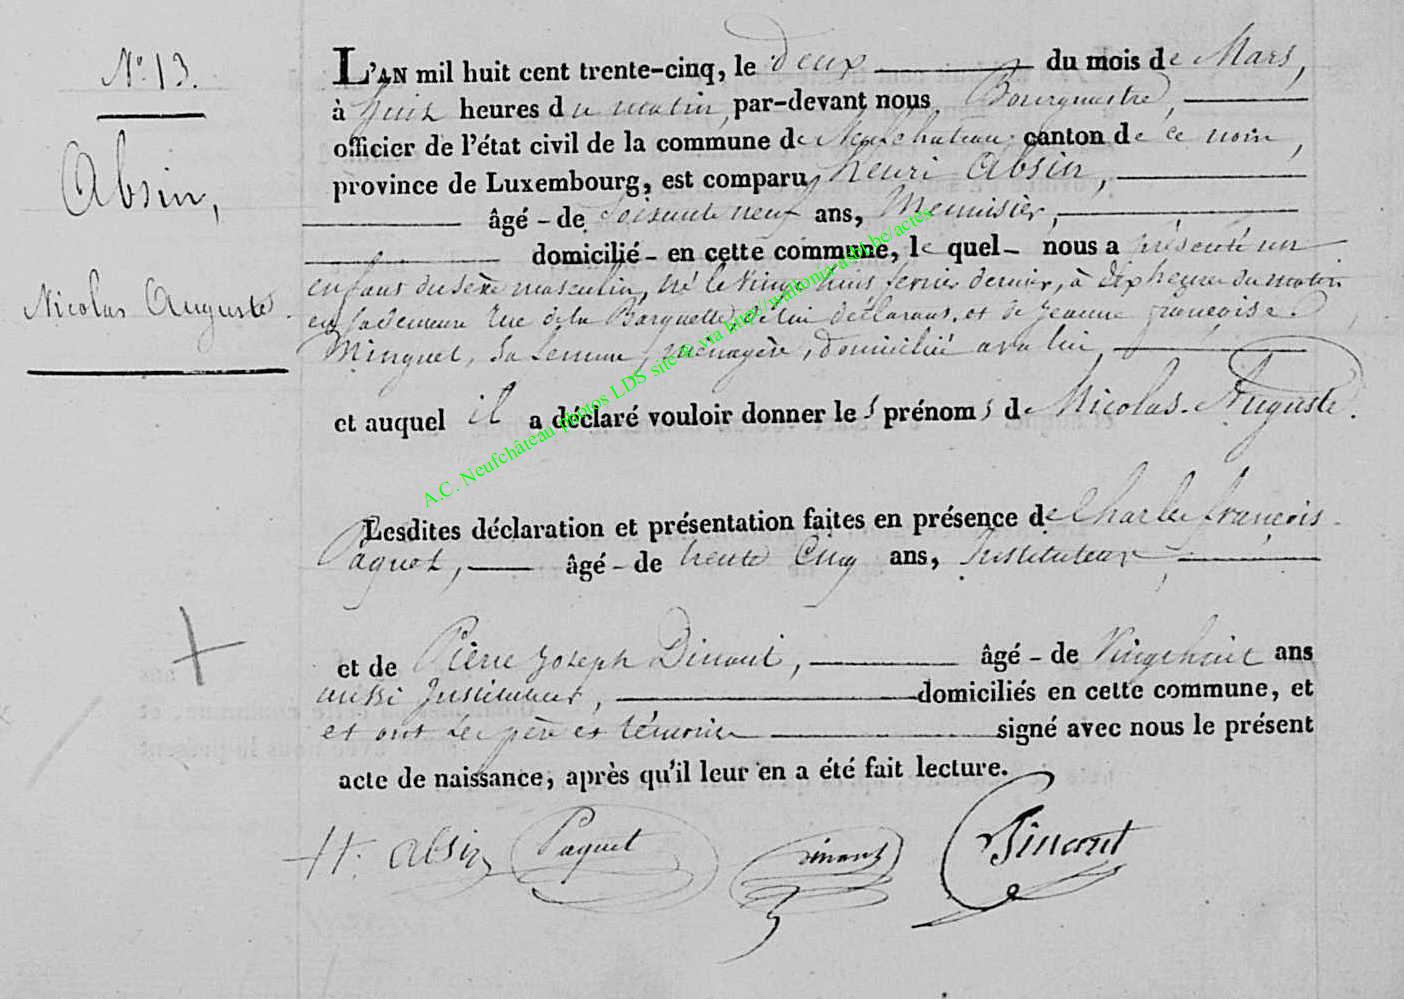 N° 13.
Absin,
Nicolas Auguste.
L'AN mil huit cent trente-cinq, le deux du mois de Mars,
à huit heures du matin, par-devant nous Bourgmestre,
officier de l'état civil de la commune de Neufchateau canton de ce nom,
province de Luxembourg, est comparu henri Absin,
âgé - de Soixante neuf ans, Menuisier,
domicilié - en cette commune, le quel - nous a présenté un
enfant du sèxe masculin, né le Vingt huit fevrier dernier, à dix heures du matin
en sa demeure Rue de la Barquette, de lui déclarant, et de Jeanne françoise
Minguet, Sa femme, ménagère, domicilié avec lui,
et auquel il a déclaré vouloir donner le s prénom s de Nicolas Auguste.
Lesdites déclaration et présentation faites en présence de Charles françois
Paquet, âgé - de trente Cinq ans, Instituteur
et de Pierre Joseph Dinant, âgé - de Vingt huit ans
aussi Instituteur, domiciliés en cette commune, et
et ont les père et témoins signé avec nous le présent
acte de naissance, après qu'il leur en a été fait lecture.
H. absin Paquet Dinant
A.C. Neufchâteau photos LDS site @ via http://wallonia-asbl.be/actes